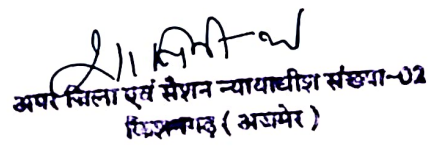 अपर जिला एवं सेशन न्यायाधीश संख्या-02
किशनगढ़ (अजमेर)